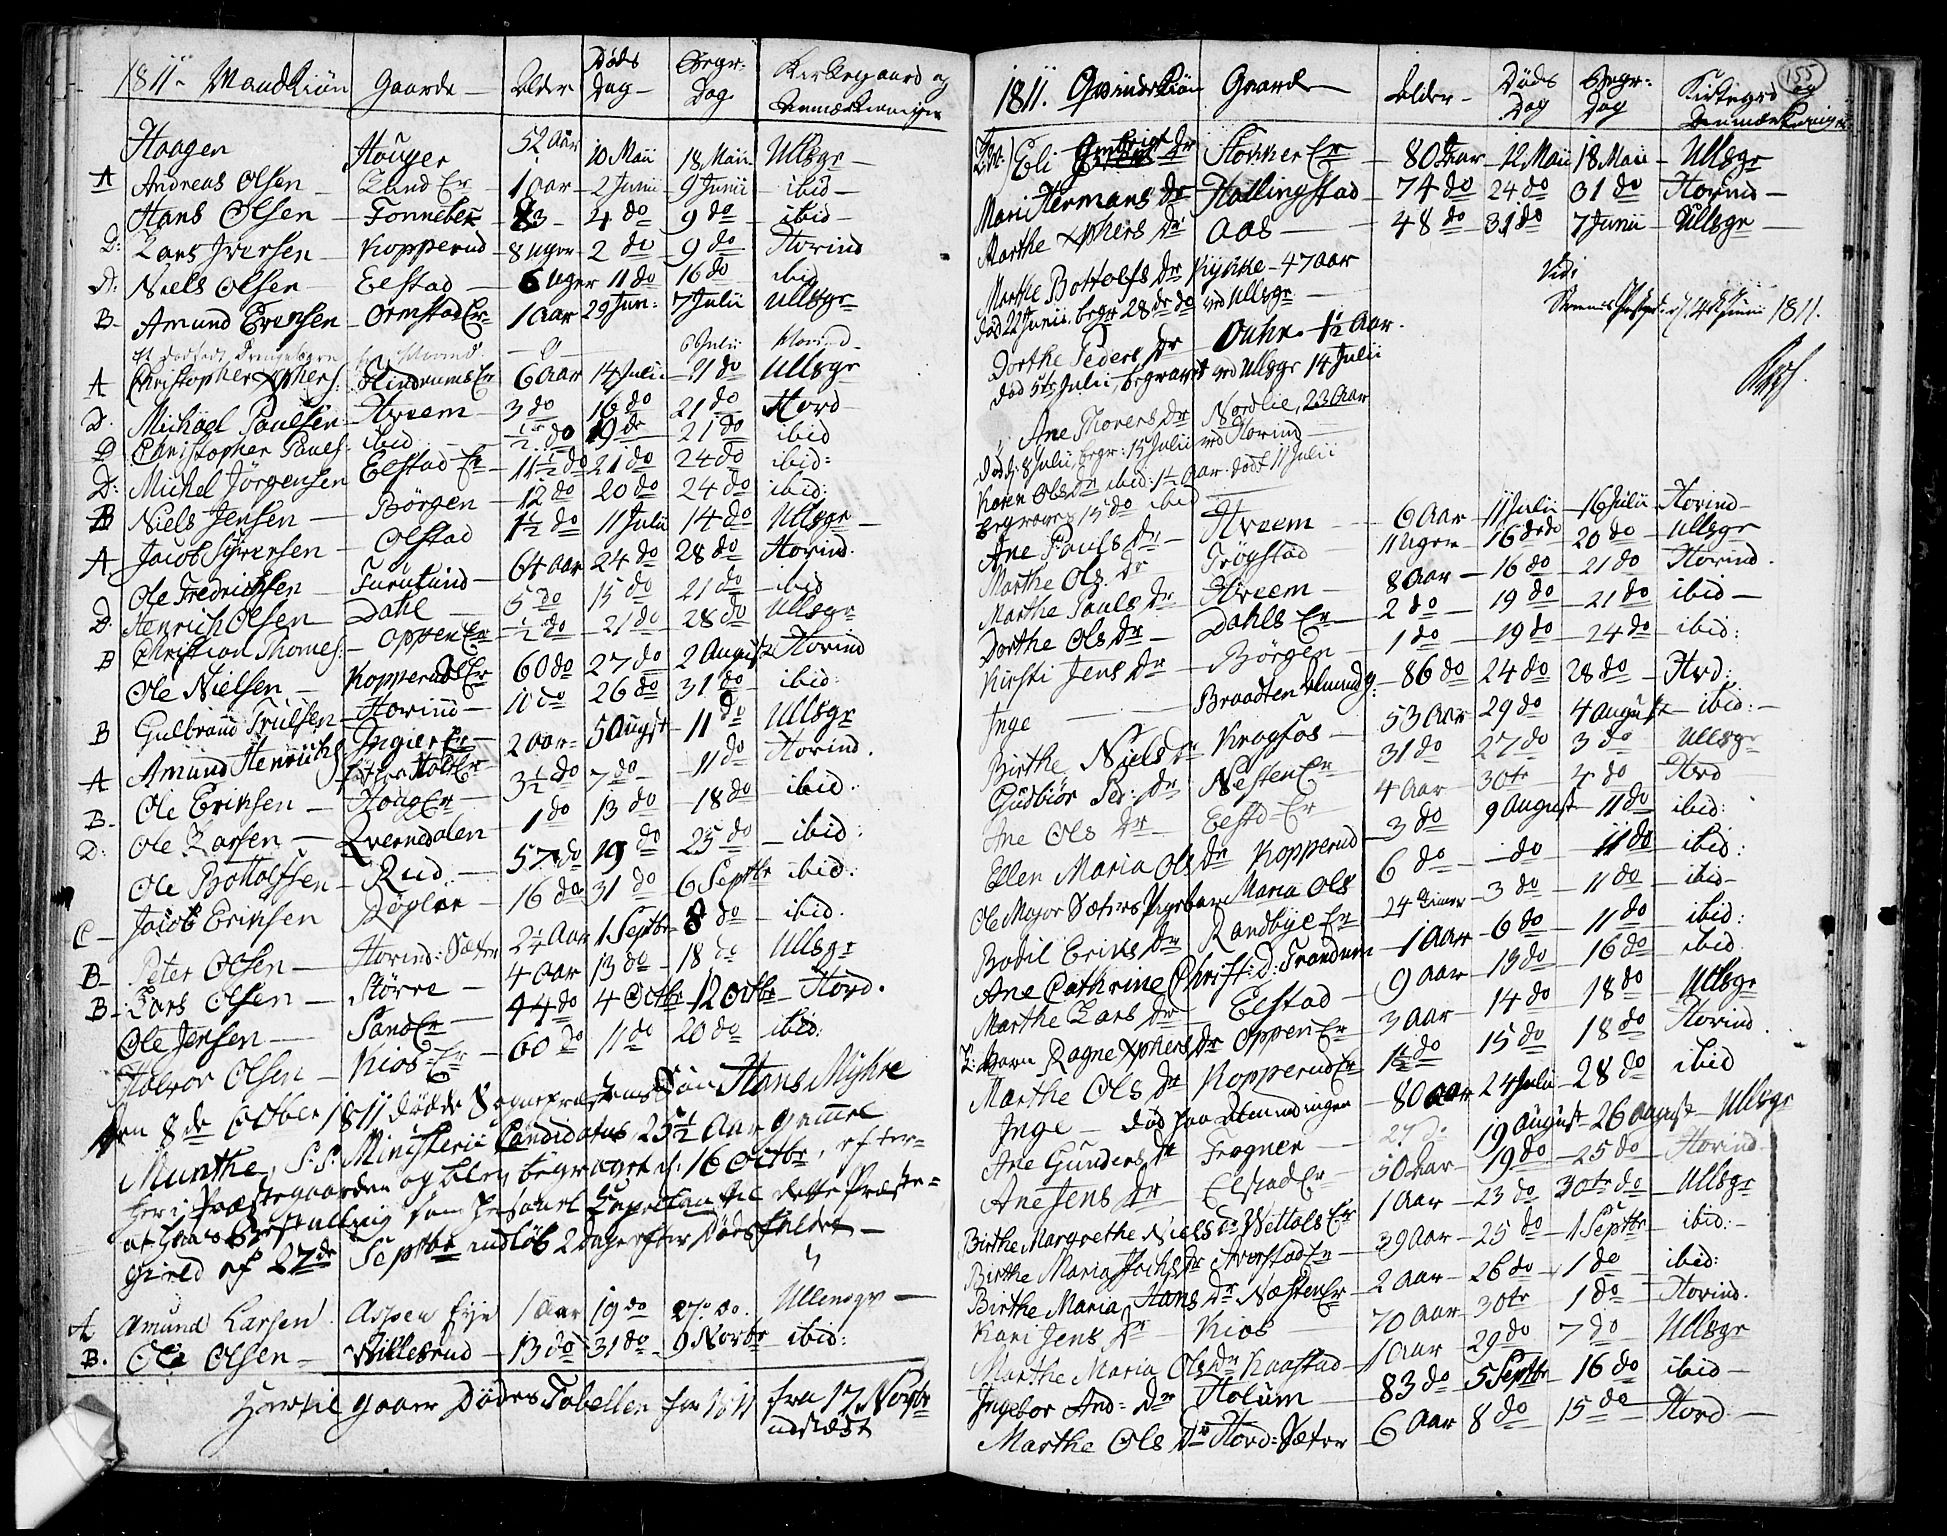 1811. Mandkiön Gaarde Alder Døds Dag Begr: Dag Kirkegaard og Anmærkninger
Haagen Houger 52 Aar 10 Maii 18 Maii Ullsgr
A Andreas Olsen Lund Er 1 Aar 2 Junii 9 Junii ibid
Hans Olsen Tonneber 83 4 do 9 do ibid
D: Lars Iversen Kopperud 8 Uger 2 do 9 do Hovind
D: Niels Olsen Elstad 6 Uger 11 do 16 do ibid
B Amund Evensen Ormstad Er 1 Aar 29 Jun: 7 Julii Ullsgr
et dødfødt Drengebarn 0 6 Julii Hovind
A Christopher Xphers. Hindrums Er 6 Aar 14 Julii 21 do Ullsgr
D. Michael Paulsen Hveem 3 do 16 do 21 do Hovd
D Christopher Pauls. ibid ½ do 19 do 21 do ibid
D: Mickel Jörgensen Elstad Er 11½ do 21 do 24 do ibid:
B Niels Jensen Börgen 12 do 20 do 24 do ibid:
A Jacob Syversen Olstad 1½ do 11 Julii 14 do Ullsgr
Ole Fredrichsen Furulund 64 Aar 24 do 28 do Hovind.
D. Henrich Olsen Dahl 5 do 15 do 21 do ibid
B Christian Thomes. Oppen Er ½ do 21 do 28 do Ullsgr
Ole Nielsen Kopperuds Er 60 do 27 do 2 August Hovind
B Gulbrand Trulsen Hovind 10 do 26 do 31 do ibid:
A Amund Henrichs. Ingier Er 2 Aar 5 August 11 do Ullsgr
B. Ole Eriksen Holt Er 3½ do 7 do 11 do Hovind.
D: Ole Larsen Houg Er 1 do 13 do 18 do ibid.
Ole Bottolfsen Kverndalen 57 do 19 do 25 do ibid:
C Jacob Eriksen Rud 16 do 31 do 6 Septbr ibid:
B Peter Olsen Døglie 2½ Aar 1 Septbr 8 do ibid.
B Lars Olsen Hovind: Sæter 4 Aar 13 do 18 do Ullsgr
Ole Jensen Större 44 do 4 Octbr 12 Octbr Hovd.
Halvor Olsen Sand Er 60 do 11 do 20 do ibid:
Kios Er
Den 8de Octber 1811 døde Sognepræstens Søn Hans Mykre
Munthe, S. S. Ministerii Candidatus 25½ Aar gammel
her i Præstegaarden og blev begravet d: 16 Octbr, efter-
at hans Bestalling som Personel Capellan til dette Præste-
gield af 27de Septbr indløb 2 Dage efter Dødsfaldet
A Amund Larsen Aspen Eye 1 Aar 19 do 27. do. Ullensgr
B. Ole Olsen Willesrud 13 do 31 do 9 Novbr ibid:
Hertil gaaer Dødes Tabellen for 1811 fra 17 Novbr
indsendt
155
1811. Qvindekiön Gaarde Alder Døds Dag Begr: Dag Kirkegrd og Anmærkninger
Eli Engebrigt Dr Stokker Er 80 Aar 12 Maii 18 Maii Ullsgr
Mari Hermans Dr Hallingstad 74 do 24 do 31 do Hovind
Marthe Xphers Dr Aas 48 do 31 do 7 Junii Ullsgr
Marthe Bottolfs Dr Kykke 47 Aar
død 22 Junii, begr 28de do ved Ullsgr
Vidi
1811.
Dorthe Peders Dr Ouhr 1½ Aar.
død 5te Julii, begravet ved Ullsgr 14 Julii
Ane Thorers Dr Nordlie, 23 Aar
død 8 Julii, begr: 15 Julii ved Hovind
Karen Ols Dr ibid: 1½ Aar. død 11 Julii
begraves 15 do ibid
Ane Pauls Dr Hveem 6 Aar 11 Julii 16 Julii Hovind
Marthe Ols. Dr Trögstad 11 Uger 16 do 20 do Ullsgr
Marthe Pauls Dr Hveem 8 Aar 16 do 21 do Hovind.
Dorthe Ols Dr Dahls Er 2 do 19 do 21 do ibid
Kirsti Jens Dr Börgen 1 do 19 do 24 do ibid:
Inge Braadten Almindg: 86 do 24 do 28 do Hvd:
Birthe Niels Dr Krogfos 53 Aar 29 do 4 August ibid:
Gudbiör Ped: Dr Nesten Er 31 do 27 do 3 do Ullsgr
Ane Ols Dr Elstd Er 4 Aar 30te 4 do Hvd
Ellen Maria Ols Dr Kopperud 3 do 9 August 11 do ibid:
Ole Major Sæters Pigebarn Maria Ols 6 do do 11 do ibid:
Bodil Eriks Dr Randbye Er 24 Timer 3 do 11 do ibid
Ane Cathrine Christ: D: Trandum 1 Aar 6 do 11 do ibid:
Marthe Lars Dr Elstad 9 Aar 13 do 16 do ibid
Karn Ragne Xphers Dr Oppen Er 3 Aar 14 do 18 do Ullsgr
Marthe Ols Dr Kopperud Er 1½ do 15 do 18 do Hovind.
Inge død paa Almindingen 80 Aar 24 Julii 28 do ibid
Ane Gunders Dr Frogner 27 do 19 August 26 August Ullsgr
Ane Jens Dr Elstad Er 50 Aar 19 do 25 do Hovind
Birthe Margrethe Niels D. Wettals Er 1 Aar 23 do 30te do Ullsgr
Birthe Maria Jachs Dr Arverstad Er 39 Aar 25 do 1 Septbr ibid:
Birthe Maria Hans Dr Næsten Er 2 Aar 26 do 1 do ibid:
Kari Jens Dr Kios 70 Aar 30te 1 do Hovind.
Marthe Maria Ols Dr Kaastad 1 Aar 29 do 7 do Ullsgr
Ingebor And: Dr Holum 83 do 5 Septbr 16 do ibid
Marthe Ols Dr Hovd: Sæter 6 Aar 8 do 15 do Hovd.